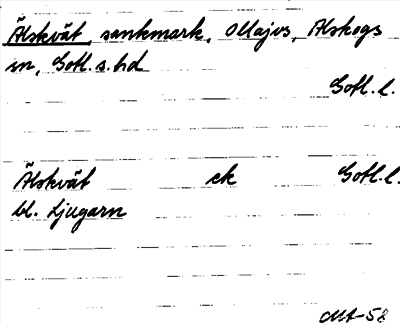 Älskvät, sankmark, Majvs, Alskogs
sn, Gotl. s. hd
Gotl. l.
Älskvät ek Gotl. l.
bl. Ljugarn
MA-58